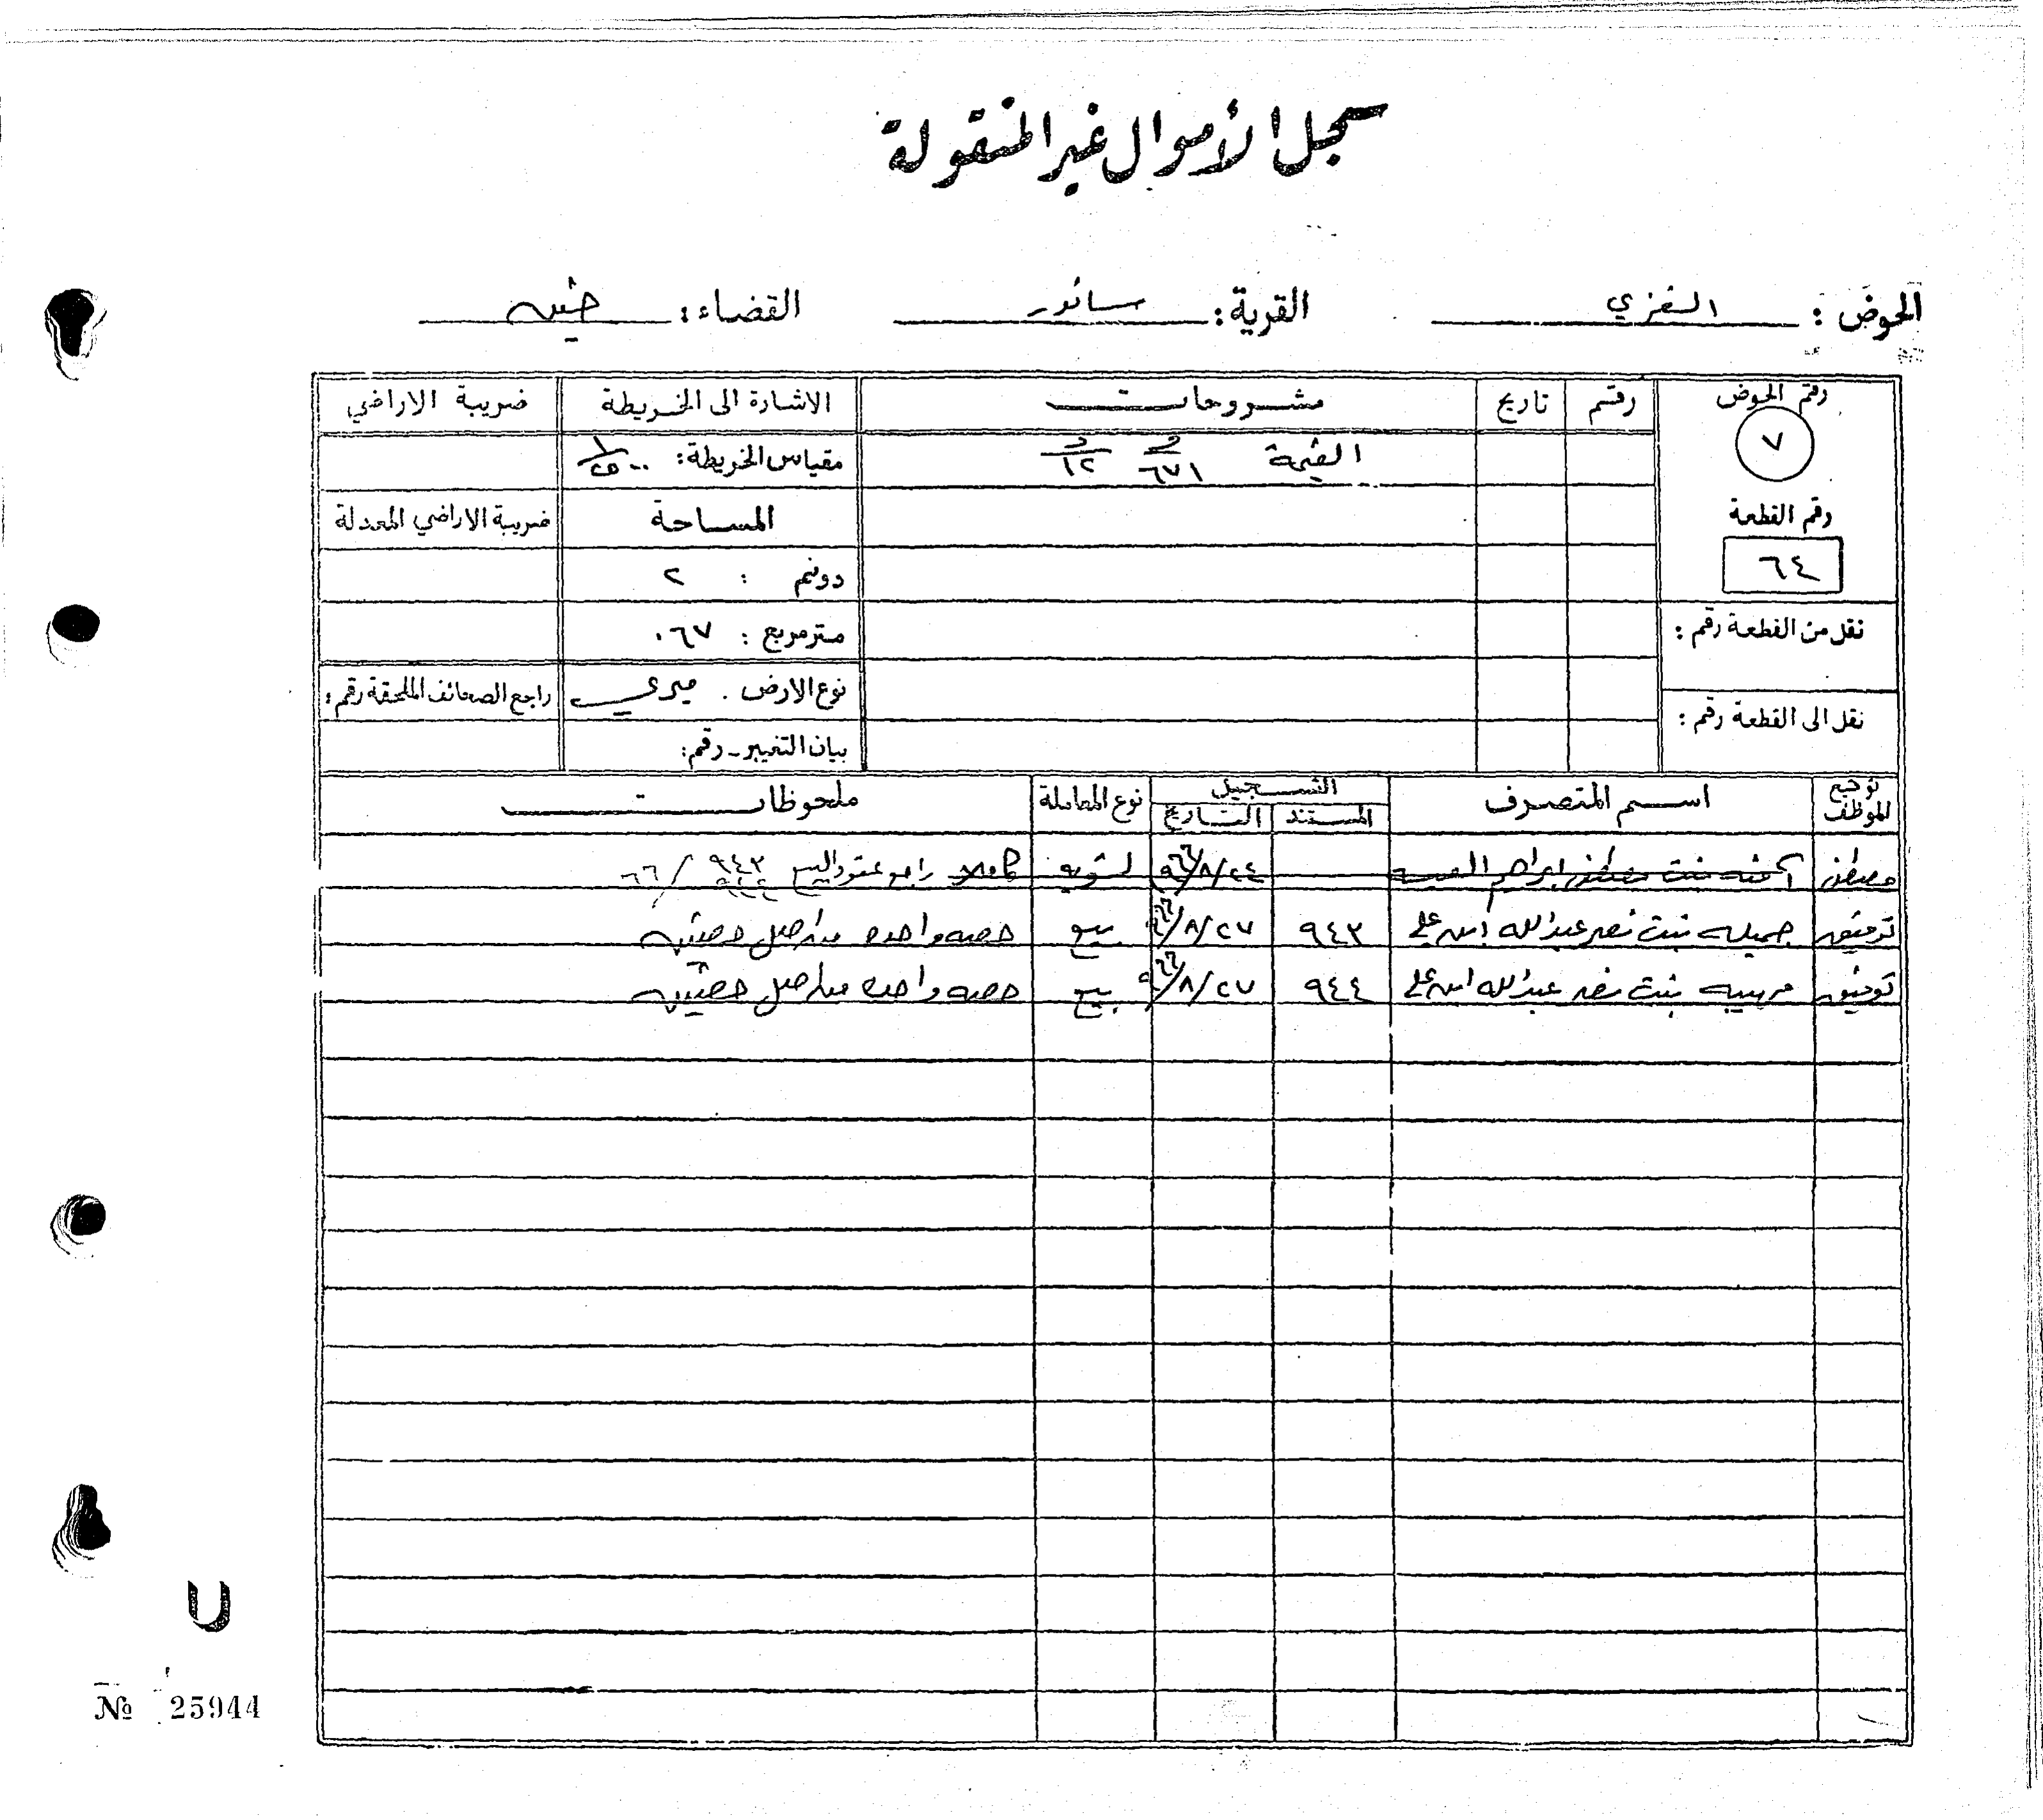 سجل الأموال غير المنقولة
الحوض : الغزي القرية : سانور القضاء : جنين
رقم الحوض رقم تاريخ مشروحات الاشارة الى الخريطة ضريبة الاراضي
٧ القيمة ف ٦٧١ د ١٢ مقياس الخريطة : ١/٢٥٠٠
رقم القطعة المساحة ضريبة الاراضي المعدلة
٦٤ دونم : ٢
نقل من القطعة رقم : متر مربع : ٠٦٧
نوع الارض . ميري راجع الصحائف الملحقة رقم :
نقل الى القطعة رقم :
بيان التغيير - رقم :
توقيع الموظف اسم المتصرف التسجيل نوع المعاملة ملحوظات
المستند التاريخ
مصطفى بنت مصطفى ابراهيم ٩٦٦/٨/٢٤ تسويه كاملا راجع عقود البيع ٩٤٣ ٩٤٤ / ٦٦
توفيق جميله بنت نصر عبدالله ابن علي ٩٤٣ ٩٦٦/٨/٢٧ بيع حصه واحده من اصل حصتين
توفيق مهيبه بنت نصر عبدالله ابن علي ٩٤٤ ٩٦٦/٨/٢٧ بيع حصه واحده من اصل حصتين
U
№ 25944